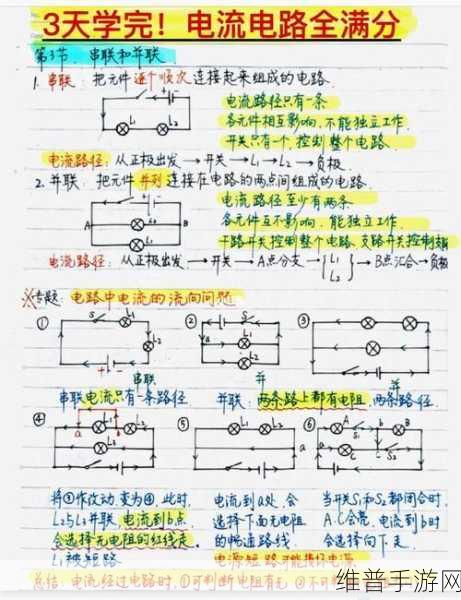 3天学完！电流电路全满分
第3节、串联和并联
1. 串联：把元件逐个顺次连接起来组成的电路
电流路径只有一条
各元件相互影响，不能独立工作.
开关只有一个，控制整个电路.
L1 L2
电流路径：从正极出发→开关→L1→L2→负极.
2. 并联：把元件并列连接在电路的两点间组成的电路.
电流路径至少有两条
各元件互不影响，能独立工作.
干路开关控制整个电路、支路开关控制支路
A B
L1
L2
电流路径：从正极出发→开关→A点分支→{L1 L2}→B点汇合→负极
※专题：电路中电流的流向问题
① S L1 L2
② S L1 L2
③
串联
串联电流只有一条路径
并
并联：两条路上都有电阻
并
两条路径.
④ a b L1 L2
⑤ L1 L2 a
⑥ A S1 b B C S2 a
将①作改动，变为④，此时，
L2与L3并联，电流到b点
会选择无电阻的红线走.
L1被短路
电流到a处，会
选择下面无电阻
的畅通路线.
电源短路可能损坏电源
当开关S1和S2都闭合时
A.C会亮，电流到b时
会选择向下走.
总结：电流经过电路时，①可判断电阻有无 ②不可判断
维普手游网